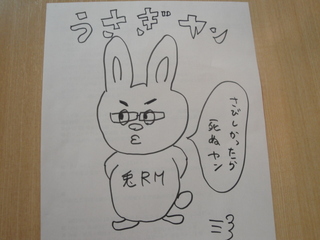 うさぎヤン
さびしかったら
死ぬヤン
兎RM